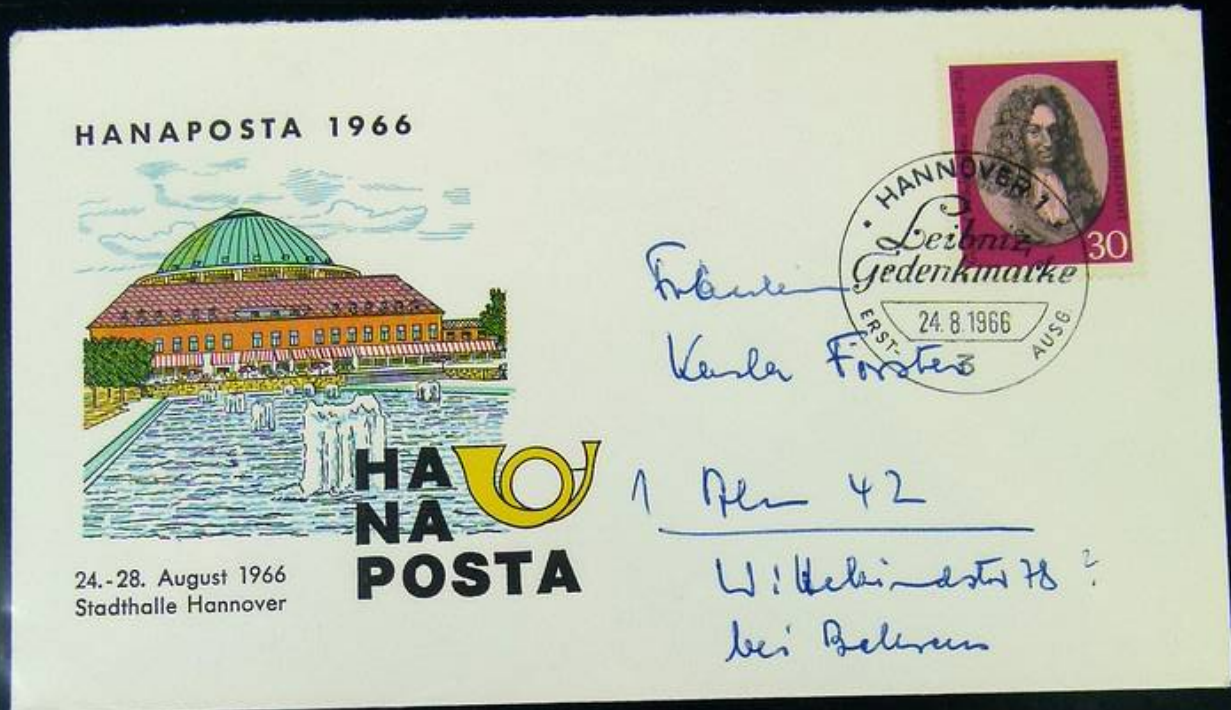 HANAPOSTA 1966
HA
NA
POSTA
24.-28. August 1966
Stadthalle Hannover
30
HANNOVER 1
Leibniz
Gedenkmarke
24.8.1966
ERST- AUSG
3
Fräulein
Förster
1 Bln 42
78 ?
bei Behrens